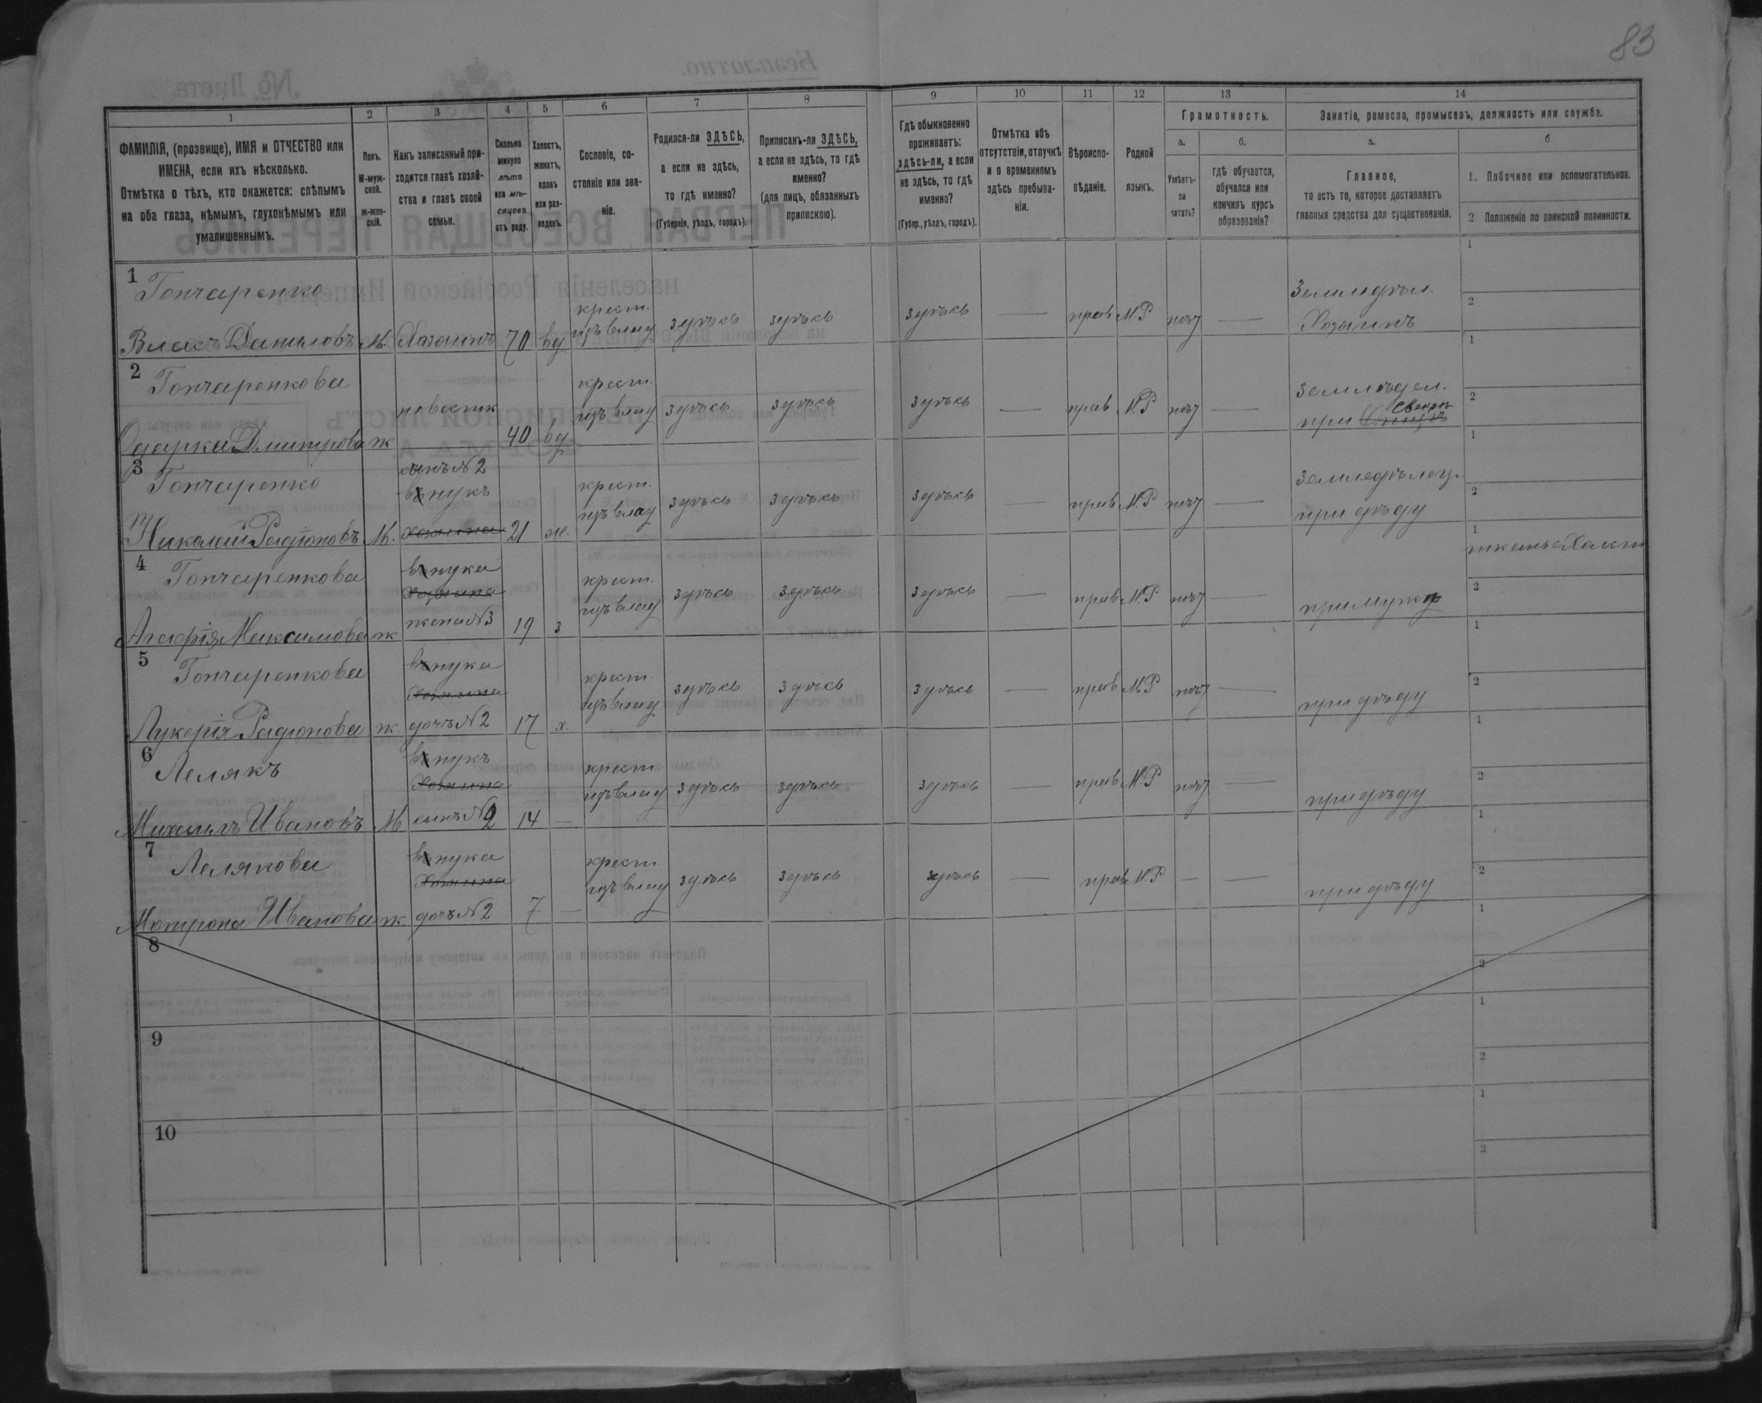 83
1 2 3 4 5 6 7 8 9 10 11 12 13 14
ФАМИЛІЯ, (прозвище), ИМЯ и ОТЧЕСТВО или
ИМЕНА, если ихъ нѣсколько.
Отмѣтка о тѣхъ, кто окажется: слѣпымъ
на оба глаза, нѣмымъ, глухонѣмымъ или
умалишеннымъ.
Полъ.
М-муж-
ской.
ж-жен-
скій.
Какъ записанный при-
ходится главѣ хозяй-
ства и главѣ своей
семьи.
Сколько
минуло
лѣтъ
или мѣ-
сяцевъ
отъ роду.
Холостъ,
женатъ,
вдовъ
или раз-
веденъ.
Сословіе, со-
стояніе или зва-
ніе.
Родился-ли ЗДѢСЬ,
а если не здѣсь,
то гдѣ именно?
(Губернія, уѣздъ, городъ).
Приписанъ-ли ЗДѢСЬ,
а если не здѣсь, то гдѣ
именно?
(для лицъ, обязанныхъ
припискою).
Гдѣ обыкновенно
проживаетъ:
здѣсь-ли, а если
не здѣсь, то гдѣ
именно?
(Губер., уѣздъ, городъ).
Отмѣтка объ
отсутствіи, отлучкѣ
и о временномъ
здѣсь пребыва-
ніи.
Вѣроиспо-
вѣданіе.
Родной
языкъ.
Грамотность.
а.
Умѣетъ-
ли
читать?
б.
гдѣ обучается,
обучался или
кончилъ курсъ
образованія?
Занятіе, ремесло, промыселъ, должность или служба.
а.
Главное,
то есть то, которое доставляетъ
главныя средства для существованія.
б
1. Побочное или вспомогательное.
2 Положеніе по воинской повинности.
1
Гончаренко
Власъ Даниловъ М. Хозяинъ 70 вд крест. здѣсь здѣсь здѣсь — прав М.Р —
Земледѣл.
Хозяинъ
1
2
2
Гончаренкова
Одарка Дмитрова ж невестк 40 вд крест. здѣсь здѣсь здѣсь — прав М.Р —
Земледел.
при свекрѣ
1
2
3
Гончаренко
Николай Радіоновъ М. сынъ №2
внукъ
хозяина 21 ж. крест. здѣсь здѣсь здѣсь — прав М.Р —
Земледѣлец.
при дѣду
1
2
4
Гончаренкова
Агафія Максимова ж внука
хозяина
жена №3 19 з крест. здѣсь здѣсь здѣсь — прав М.Р —
при мужѣ
1
2
5
Гончаренкова
Лукерія Радіонова ж. внука
хозяина
дочь №2 17 х. крест. здѣсь здѣсь здѣсь — прав М.Р —
при дѣду
1
2
6
Лелякъ
Михаилъ Ивановъ М внукъ
хозяина
сынъ №2 14 — крест здѣсь здѣсь здѣсь — прав М.Р —
при дѣду
1
2
7
Лелякова
Мотрона Иванова ж. внука
хозяина
дочь №2 7 — крест здѣсь здѣсь здѣсь — прав М.Р — —
при дѣду
1
2
8
1
2
9
1
2
10
1
2